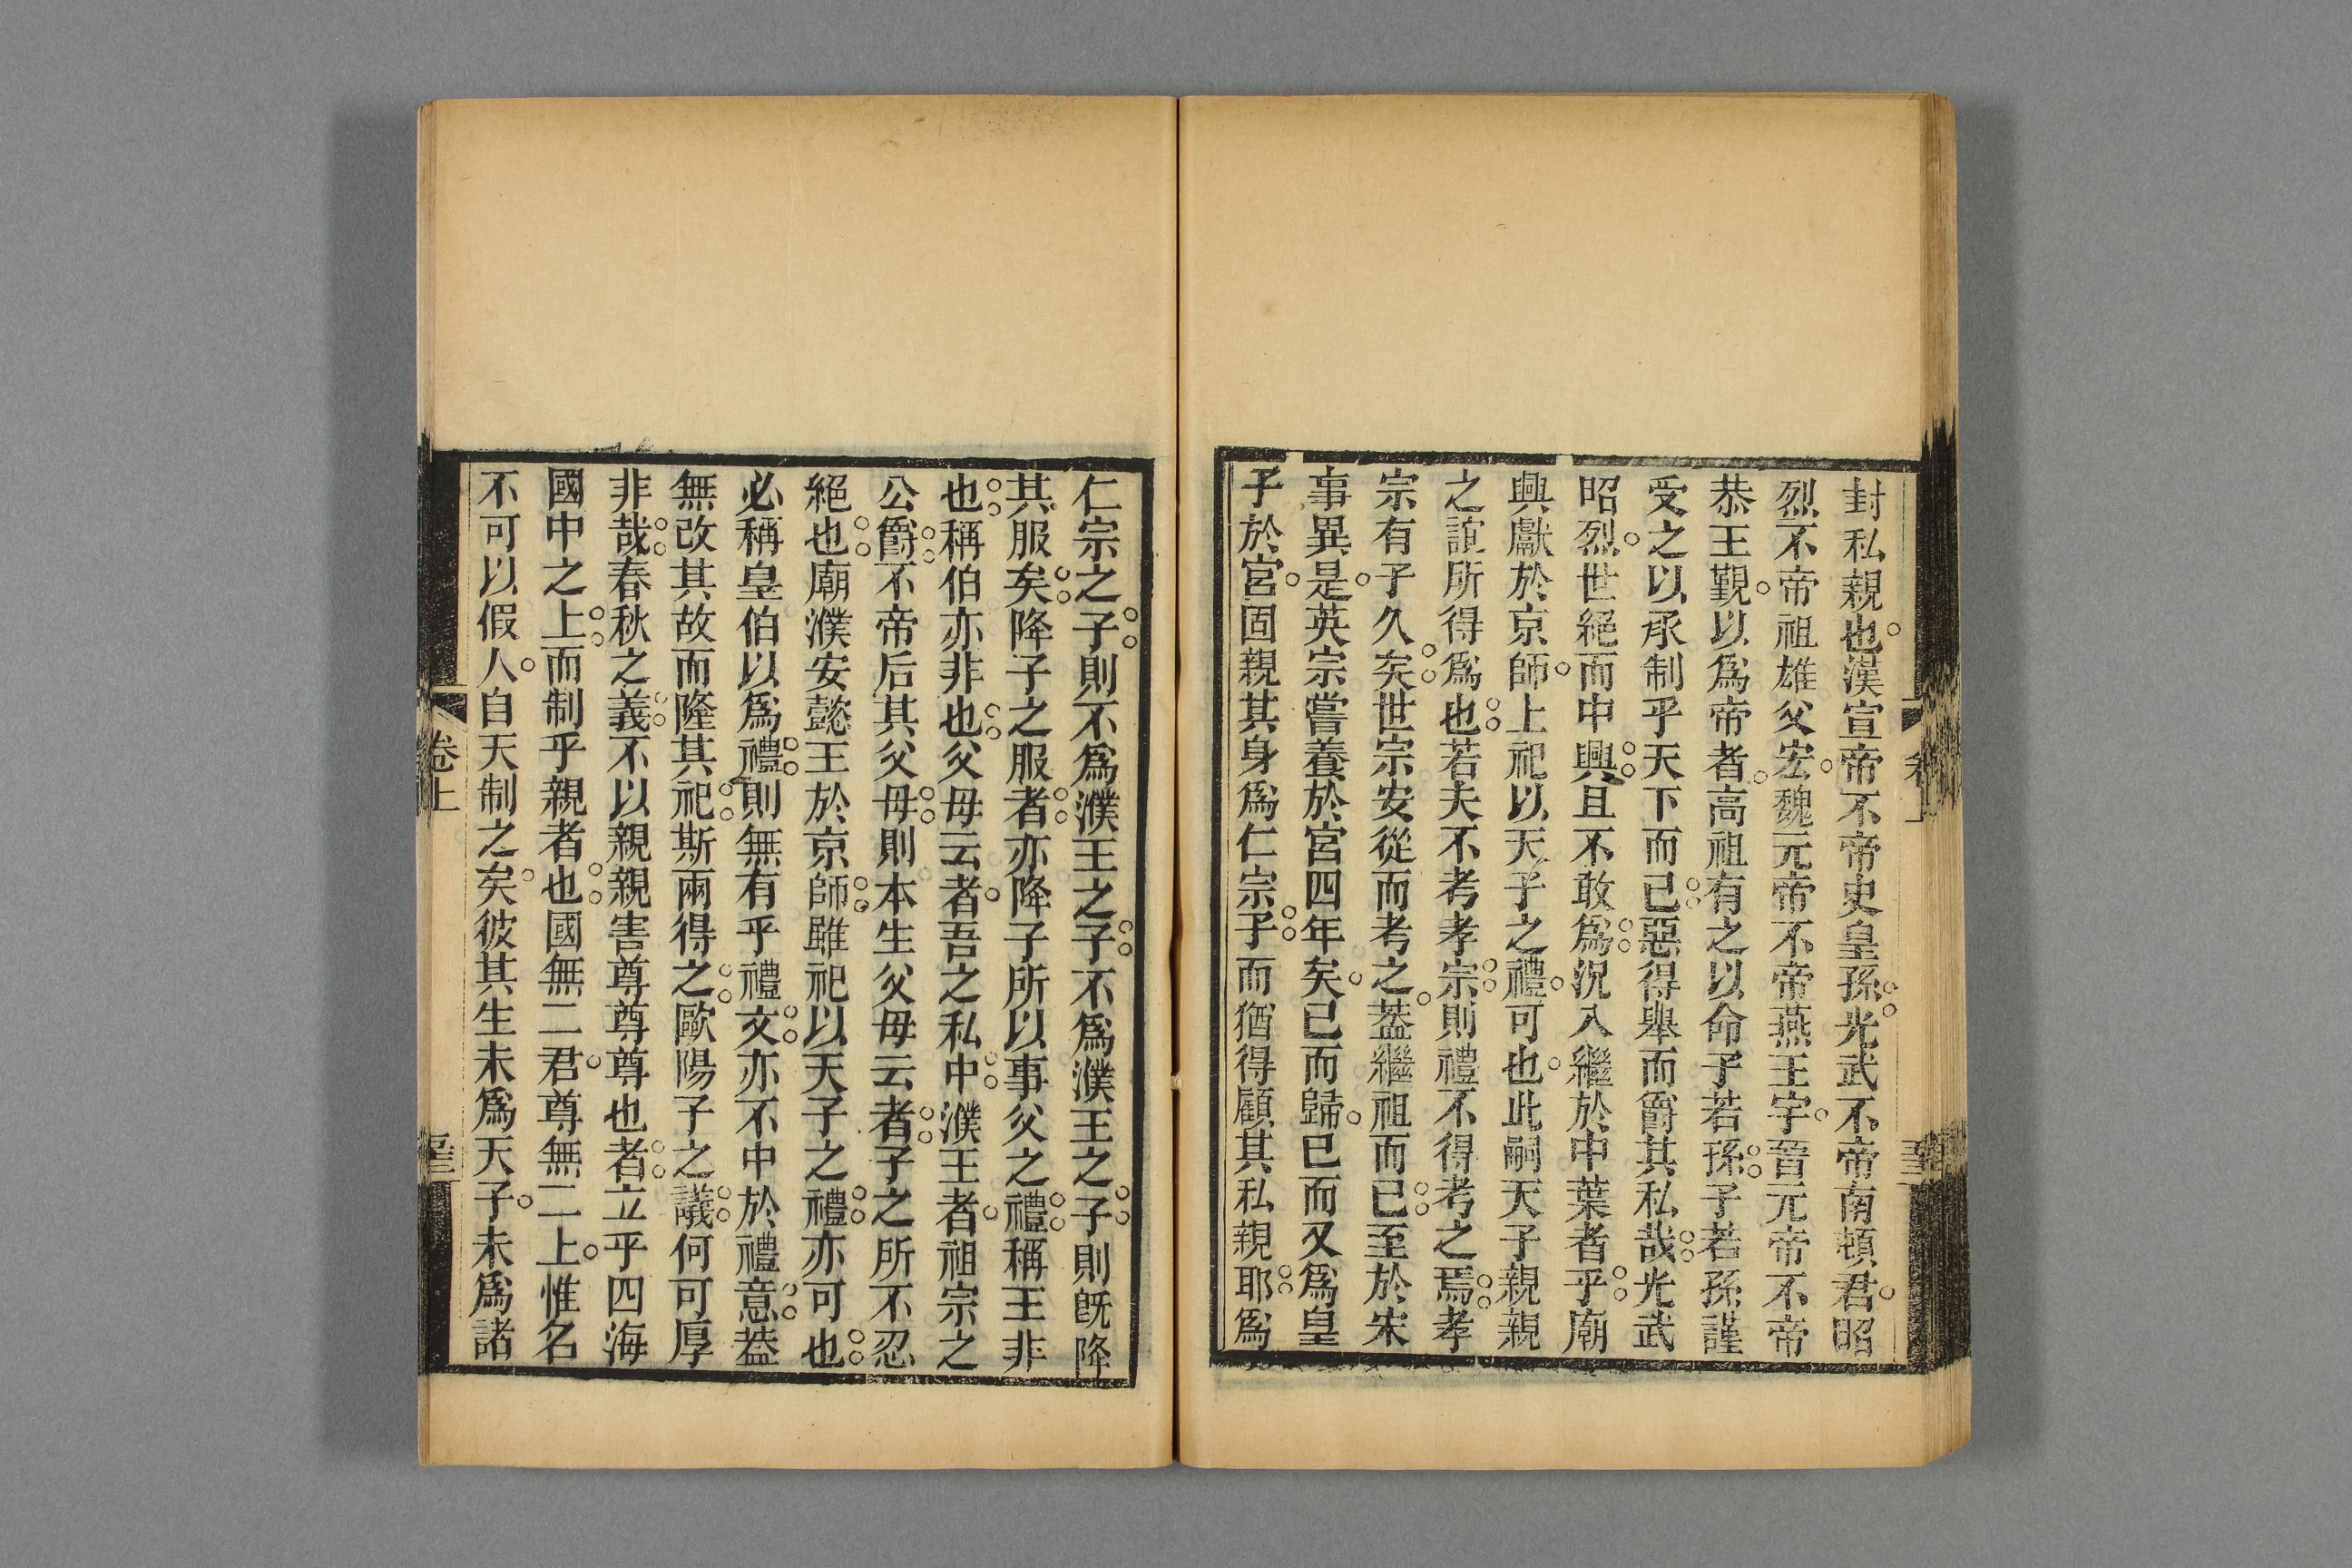 封私親也漢宣帝不帝史皇孫光武不帝南頓君昭
烈不帝祖雄父宏魏元帝不帝燕王宇晉元帝不帝
恭王覲以爲帝者高祖有之以命子若孫子若孫謹
受之以承制乎天下而已惡得舉而爵其私哉光武
昭烈世絕而中興且不敢爲況入繼於中葉者乎廟
興獻於京師上祀以天子之禮可也此嗣天子親親
之誼所得爲也若夫不考孝宗則禮不得考之焉孝
宗有子久矣世宗安從而考之葢繼祖而已至於宋
事異是英宗嘗養於宮四年矣已而歸已而又爲皇
子於宮固親其身爲仁宗子而猶得顧其私親耶爲
仁宗之子則不爲濮王之子不爲濮王之子則旣降
其服矣降子之服者亦降子所以事父之禮稱王非
也稱伯亦非也父母云者吾之私中濮王者祖宗之
公爵不帝后其父母則本生父母云者子之所不忍
絕也廟濮安懿王於京師雖祀以天子之禮亦可也
必稱皇伯以爲禮則無有乎禮文亦不中於禮意葢
無改其故而隆其祀斯兩得之歐陽子之議何可厚
非哉春秋之義不以親親害尊尊尊也者立乎四海
國中之上而制乎親者也國無二君尊無二上惟名
不可以假人自天制之矣彼其生未爲天子未爲諸
卷上